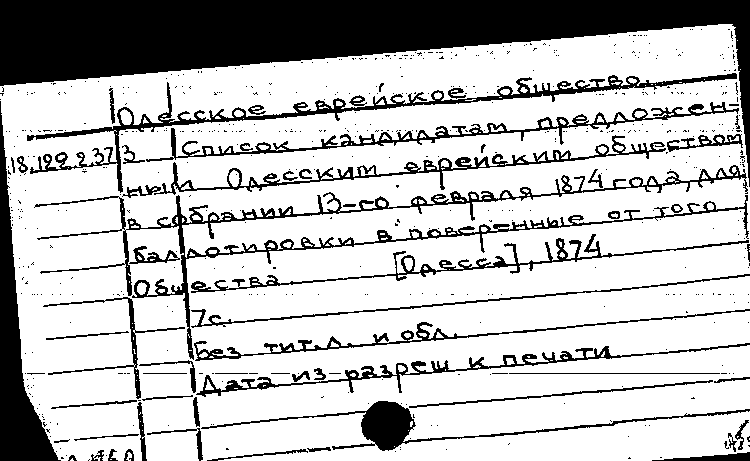 Одесское еврейское общество.
18.129.2.37 3 Список кандидатам, предложен-
ным Одесским еврейским обществом
в собрании 13-го февраля 1874 года, для
баллотировки в поверенные от того
Общества. [Одесса], 1874.
7с.
Без тит.л. и обл.
Дата из разреш к печати